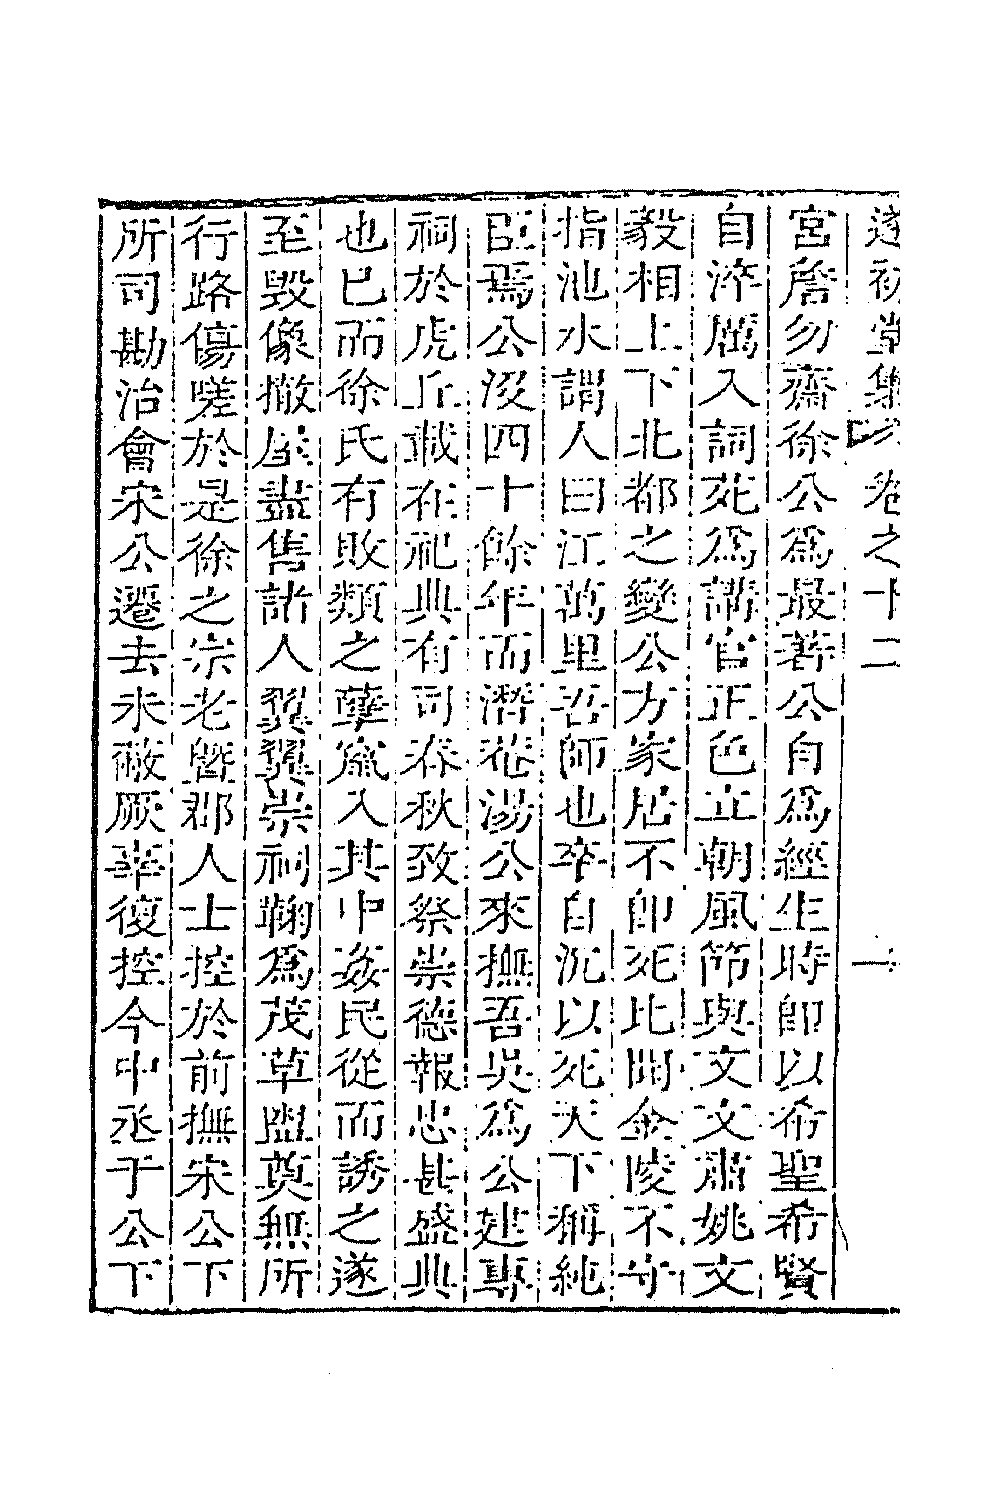 遂初堂集文卷之十二　一
宮詹勿齋徐公爲最著公自爲經生時卽以希聖希賢
自淬厲入詞苑爲講官正色立朝風節與文文肅姚文
毅相上下北都之變公方家居不卽死比聞金陵不守
指池水謂人曰江萬里吾師也卒自沉以死天下稱純
臣焉公沒四十餘年而潛菴湯公來撫吾吳爲公建專
祠於虎丘載在祀典有司春秋致祭崇德報忠甚盛典
也已而徐氏有敗類之孽竄入其中姦民從而誘之遂
至毀像撤屋盡售諸人翼翼崇祠鞠爲茂草盥奠無所
行路傷嗟於是徐之宗老曁郡人士控於前撫宋公下
所司勘治會宋公遷去未蔽厥辜復控今中丞于公下